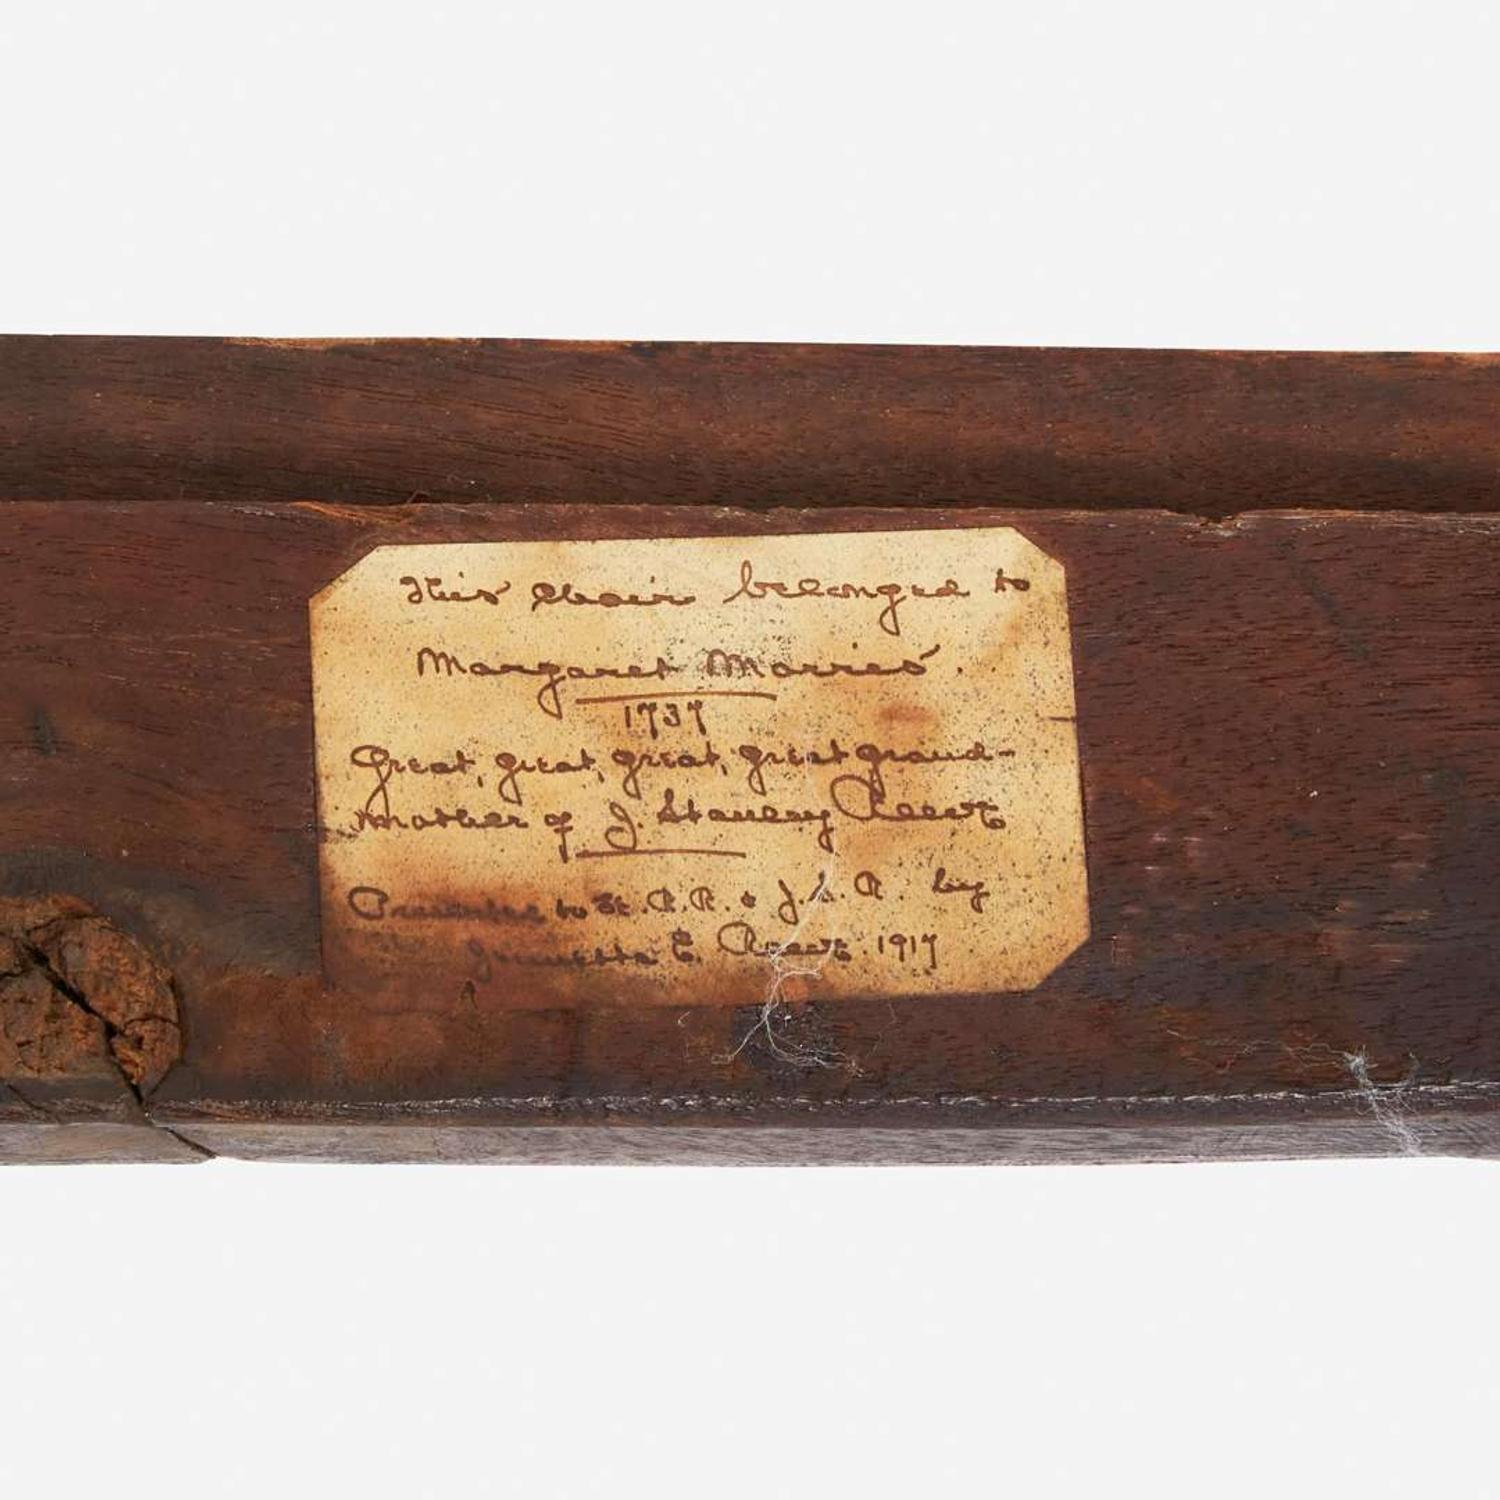 This chair belonged to
Margaret Morris.
1737
Great, great, great, great grand-
mother of J. Stanley Reeve
Presented to R. R. & J. S. R. by
E. Reeve. 1917